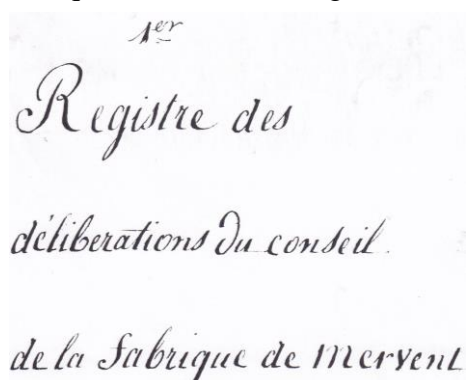 1er
Registre des
délibérations du conseil.
de la fabrique de Mervent